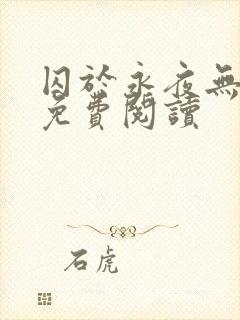 囚於永夜無
免費閱讀
石虎